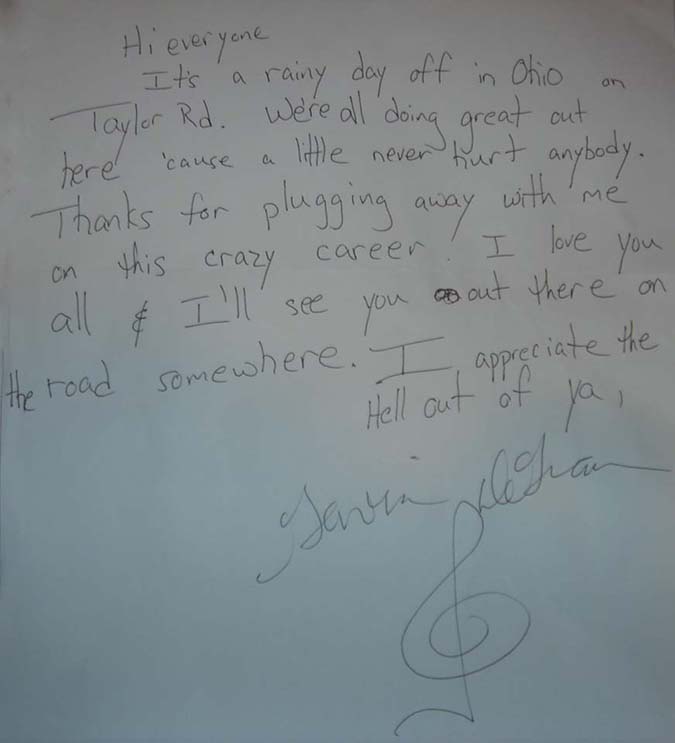 Hi everyone
It's a rainy day off in Ohio on
Taylor Rd. We're all doing great out
here 'cause a little never hurt anybody.
Thanks for plugging away with me
on this crazy career! I love you
all & I'll see you out there on
the road somewhere. I appreciate the
Hell out of ya,